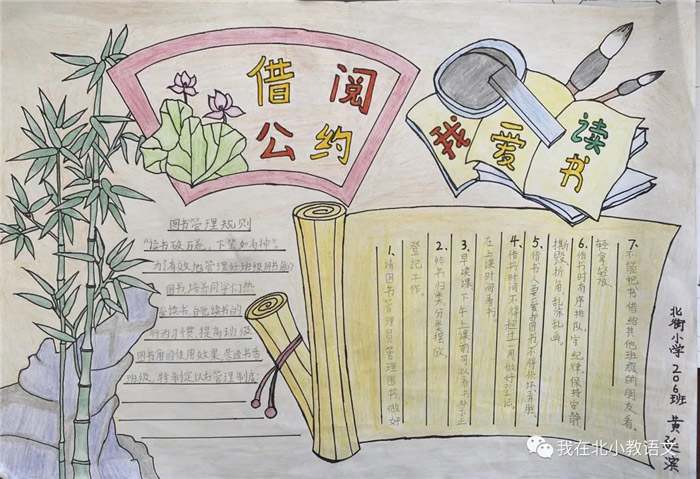 借阅
公约
我爱读书
图书管理规则
"读书破万卷，下笔如有神"。
为了有效地管理好班级图书角，
图书，培养同学们热
爱读书、自觉读书的
行为习惯，提高班级
图书角的使用效果
班级，特制定以下管理制度：
1、请图书管理员管理图书，做好
登记工作。
2、将书归类，分类摆放。
3、早读课、下午上课前可以看书，禁止
在上课时间看书。
4、借书时间不得超过一周，做好登记。
5、借书人要爱护图书，不得损坏、弄脏、
撕毁、折角、乱涂乱画。
6、借书时有序排队，守纪律，保持安静，
轻拿轻放。
7、不能把书借给其他班级的朋友看。
北街小学 206班 黄 滨
我在北小教语文